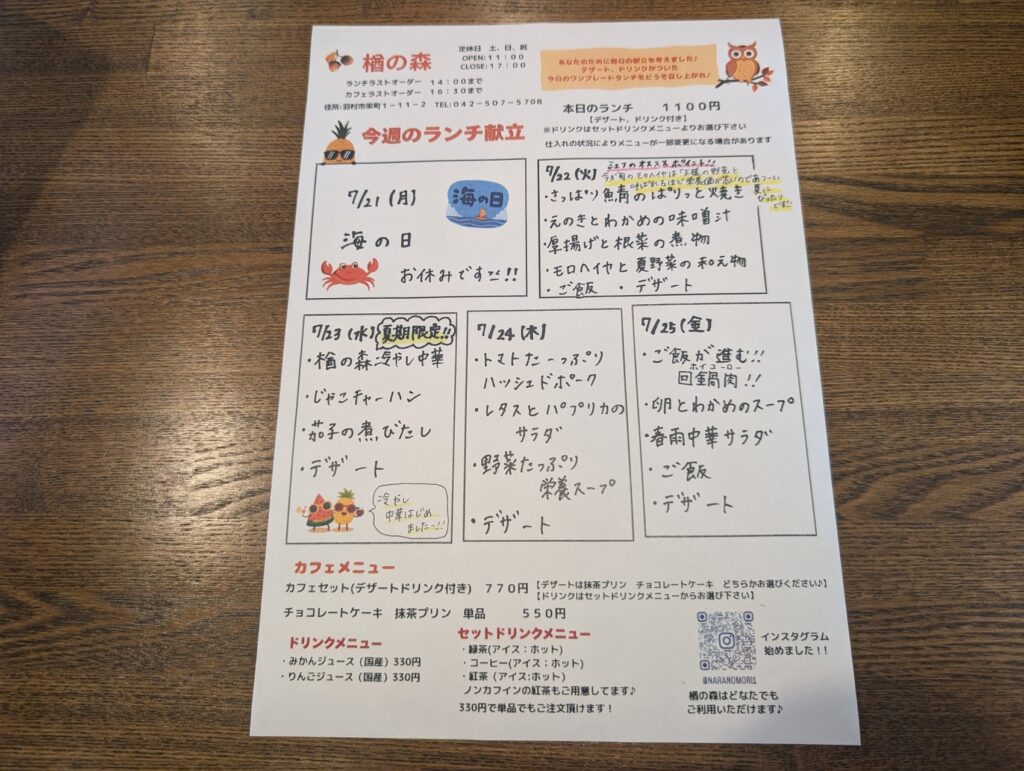 楢の森
定休日 土、日、祝
OPEN:11:00
CLOSE:17:00
ランチラストオーダー 14:00まで
カフェラストオーダー 16:30まで
住所:羽村市栄町1-11-2 TEL:042-507-5708
あなたのために毎日の献立を考えました♪
デザート、ドリンクがついた
今日のワンプレートランチをどうぞ召し上がれ♪
本日のランチ 1100円
【デザート、ドリンク付き】
※ドリンクはセットドリンクメニューよりお選び下さい
仕入れの状況によりメニューが一部変更になる場合があります
今週のランチ献立
7/21(月)
海の日
海の日
お休みですに!!
7/22(火)
シェフのオススメポイント!!
今が旬のモロヘイヤは「王様の野菜」と
呼ばれるほど栄養価が高いのであつーい
夏に
ぴったり
です!!
・さっぱり魚青のぱりっと焼き
・えのきとわかめの味噌汁
・厚揚げと根菜の煮物
・モロヘイヤと夏野菜の和え物
・ご飯 ・デザート
7/23(水) 夏期限定!!
・楢の森冷やし中華
・じゃこチャーハン
・茄子の煮びたし
・デザート
冷やし
中華はじめ
ましたー!!
7/24(木)
・トマトたーっぷり
ハッシュドポーク
・レタスとパプリカの
サラダ
・野菜たっぷり
栄養スープ
・デザート
7/25(金)
・ご飯が進む!!
ホイコーロー
回鍋肉!!
・卵とわかめのスープ
・春雨中華サラダ
・ご飯
・デザート
カフェメニュー
カフェセット(デザートドリンク付き) 770円
【デザートは抹茶プリン チョコレートケーキ どちらかお選びください♪】
【ドリンクはセットドリンクメニューからお選び下さい】
チョコレートケーキ 抹茶プリン 単品 550円
ドリンクメニュー
・みかんジュース(国産)330円
・りんごジュース(国産)330円
セットドリンクメニュー
・緑茶(アイス:ホット)
・コーヒー(アイス:ホット)
・紅茶(アイス:ホット)
ノンカフインの紅茶もご用意してます♪
330円で単品でもご注文頂けます!
@NARANOMORI1
インスタグラム
始めました!!
楢の森はどなたでも
ご利用いただけます♪